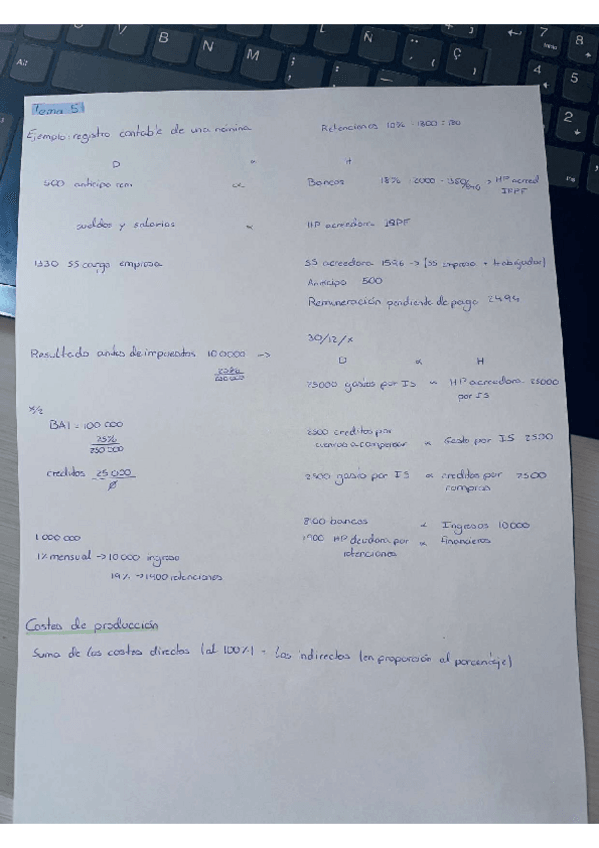 Tema 5
Ejemplo: registro contable de una nómina
Retenciones 10% 1300 = 130
D a H
500 anticipo rem a Bancos 18% 2000 - 350 → HP acred
IRPF
sueldos y salarios a HP acreedora IRPF
SS cargo empresa SS acreedora 1526 → [SS empresa + trabajador]
Anticipo 500
Remuneración pendiente de pago 2494
30/12/x
Resultado antes de impuestos 100 000 →
25%
D a H
25000 gastos por IS a HP acreedora 25000
por IS
x/2
BAI = 100 000
25%
250 000
2500 creditos por
a Gasto por IS 2500
creditos 25 000
Ø
2500 gasto por IS a creditos por 2500
8100 bancos a Ingresos 10000
1900 HP deudora por a financieros
retenciones
1 000 000
1% mensual → 10 000 ingreso
19% → 1900 retenciones
Costes de producción
Suma de los costes directos (al 100%) + los indirectos (en proporción al porcentaje)